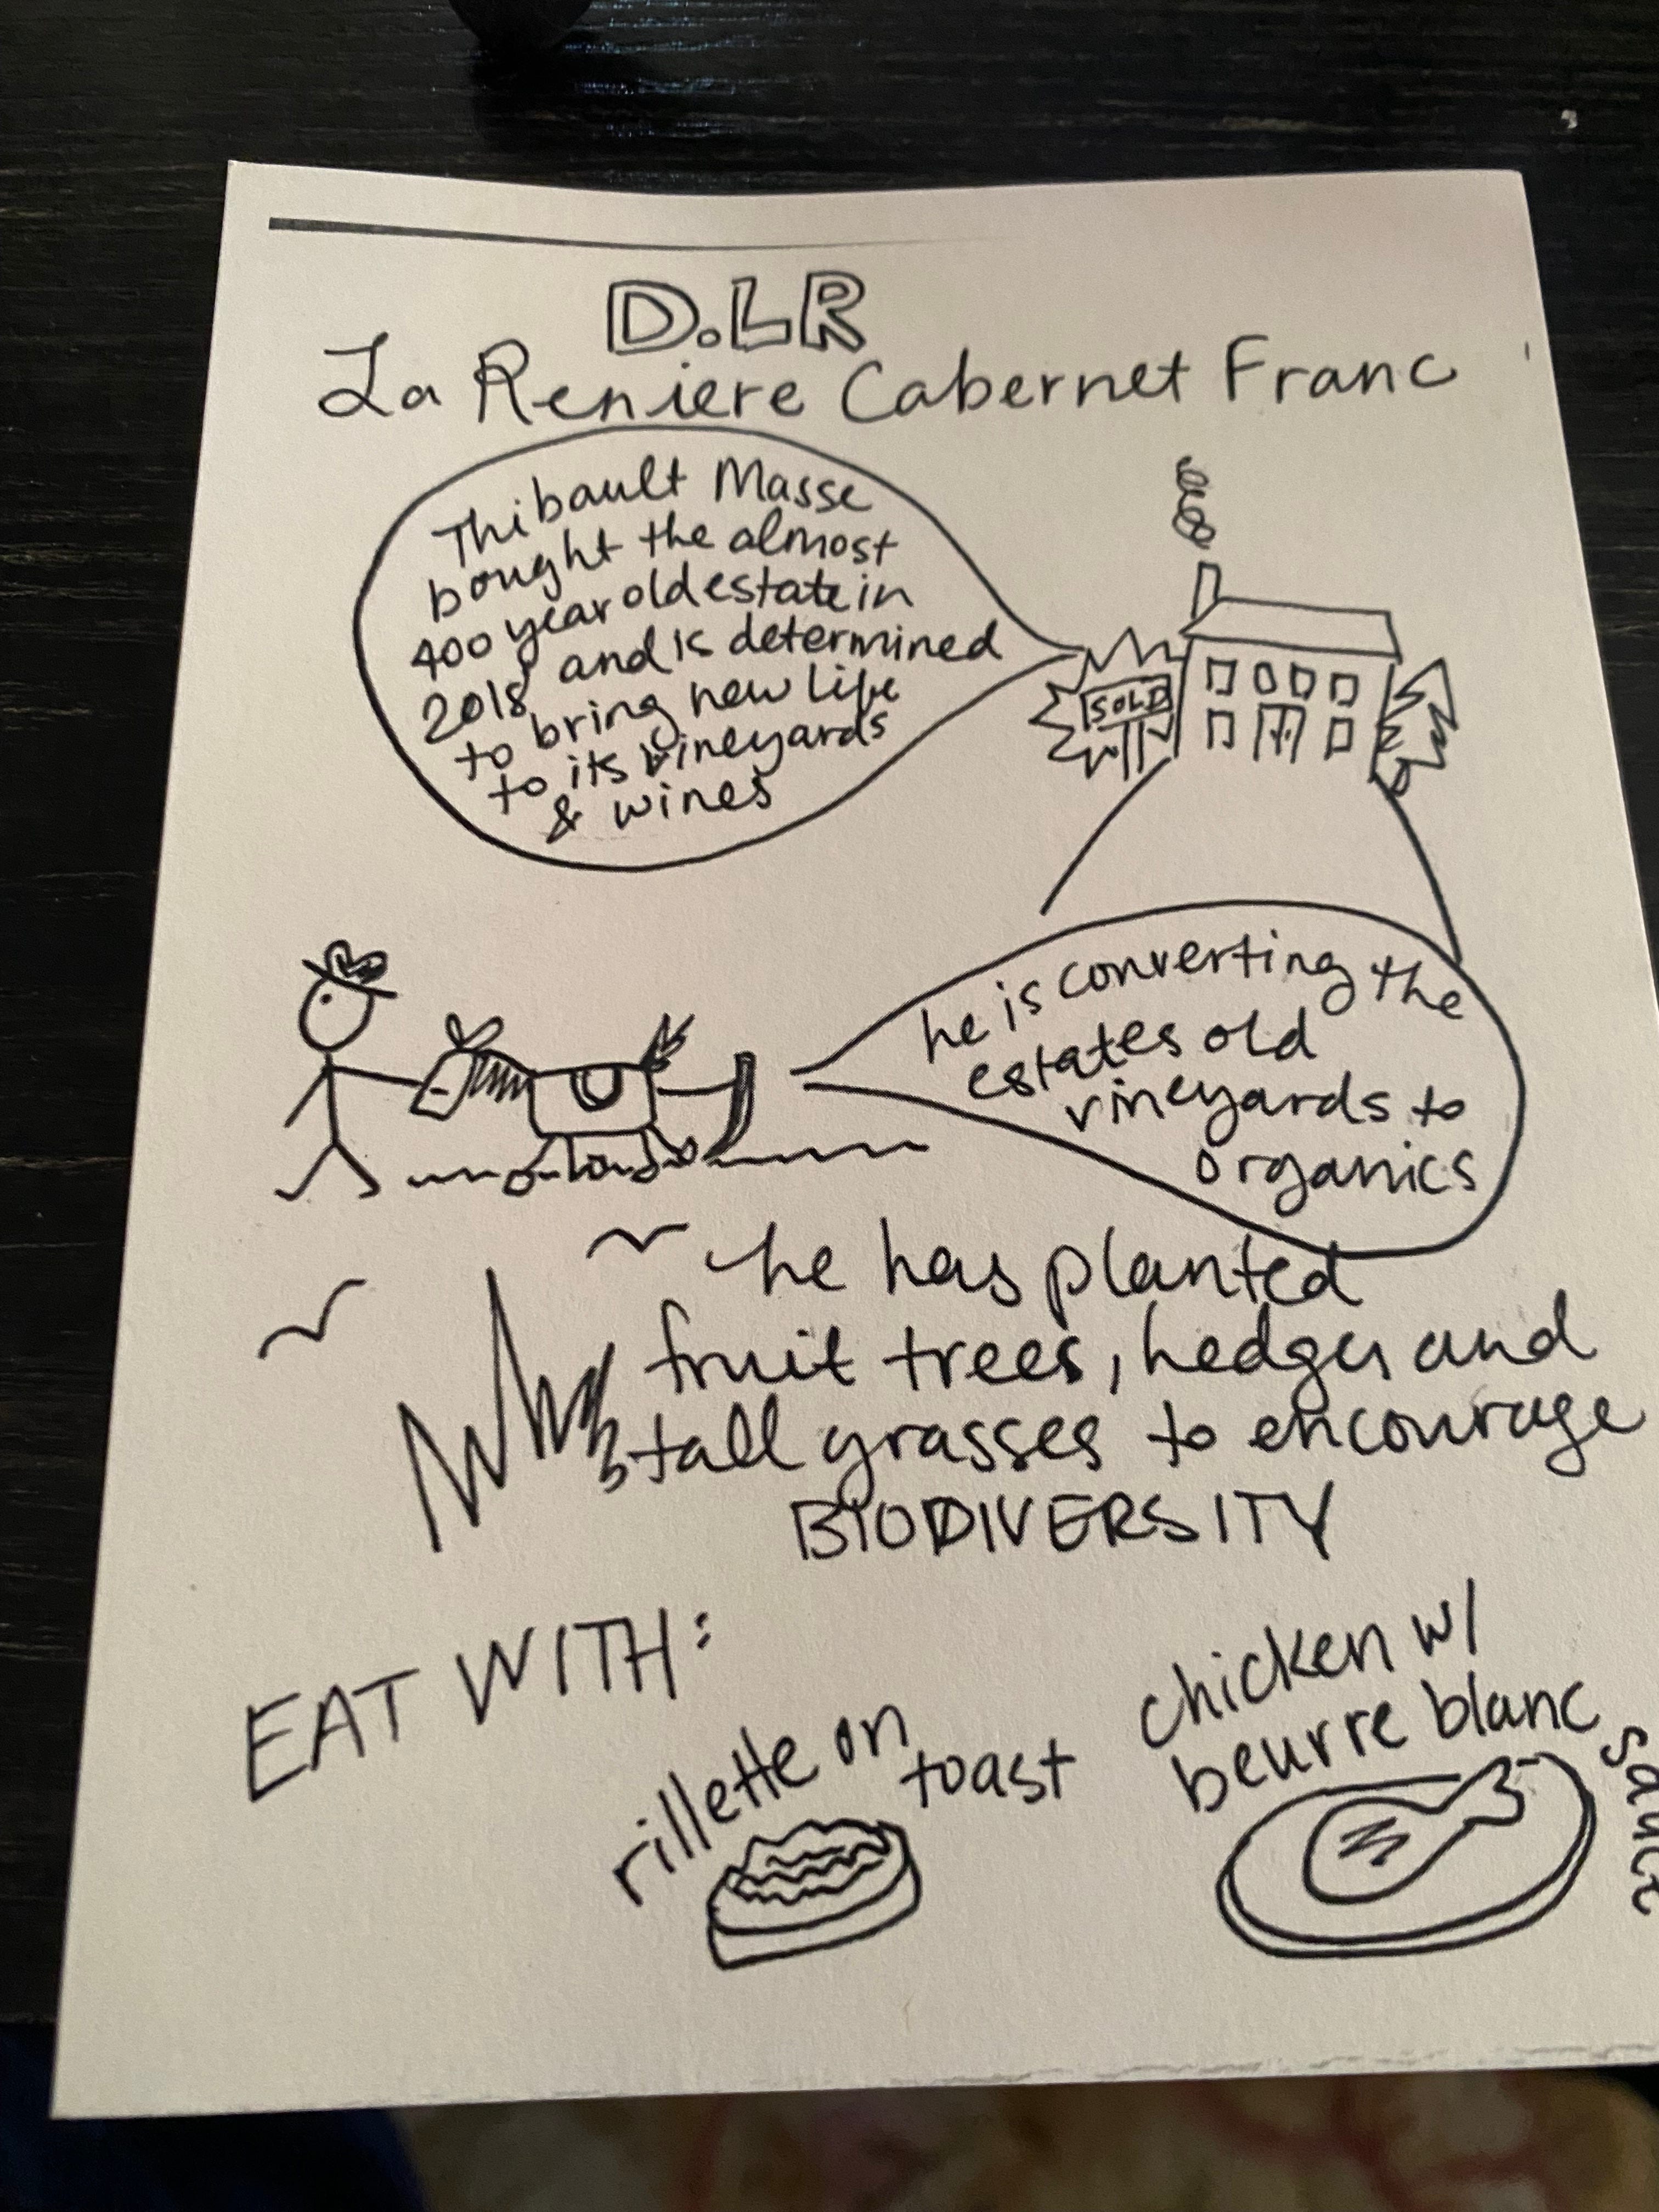 D.LR
La Reniere Cabernet Franc
Thibault Masse
bought the almost
400 year old estate in
2018 and is determined
to bring new life
to its vineyards
& wines
SOLD
he is converting the
estates old
vineyards to
organics
he has planted
fruit trees, hedges and
tall grasses to encourage
BIODIVERSITY
EAT WITH:
rillette on
toast
chicken w/
beurre blanc
sauce